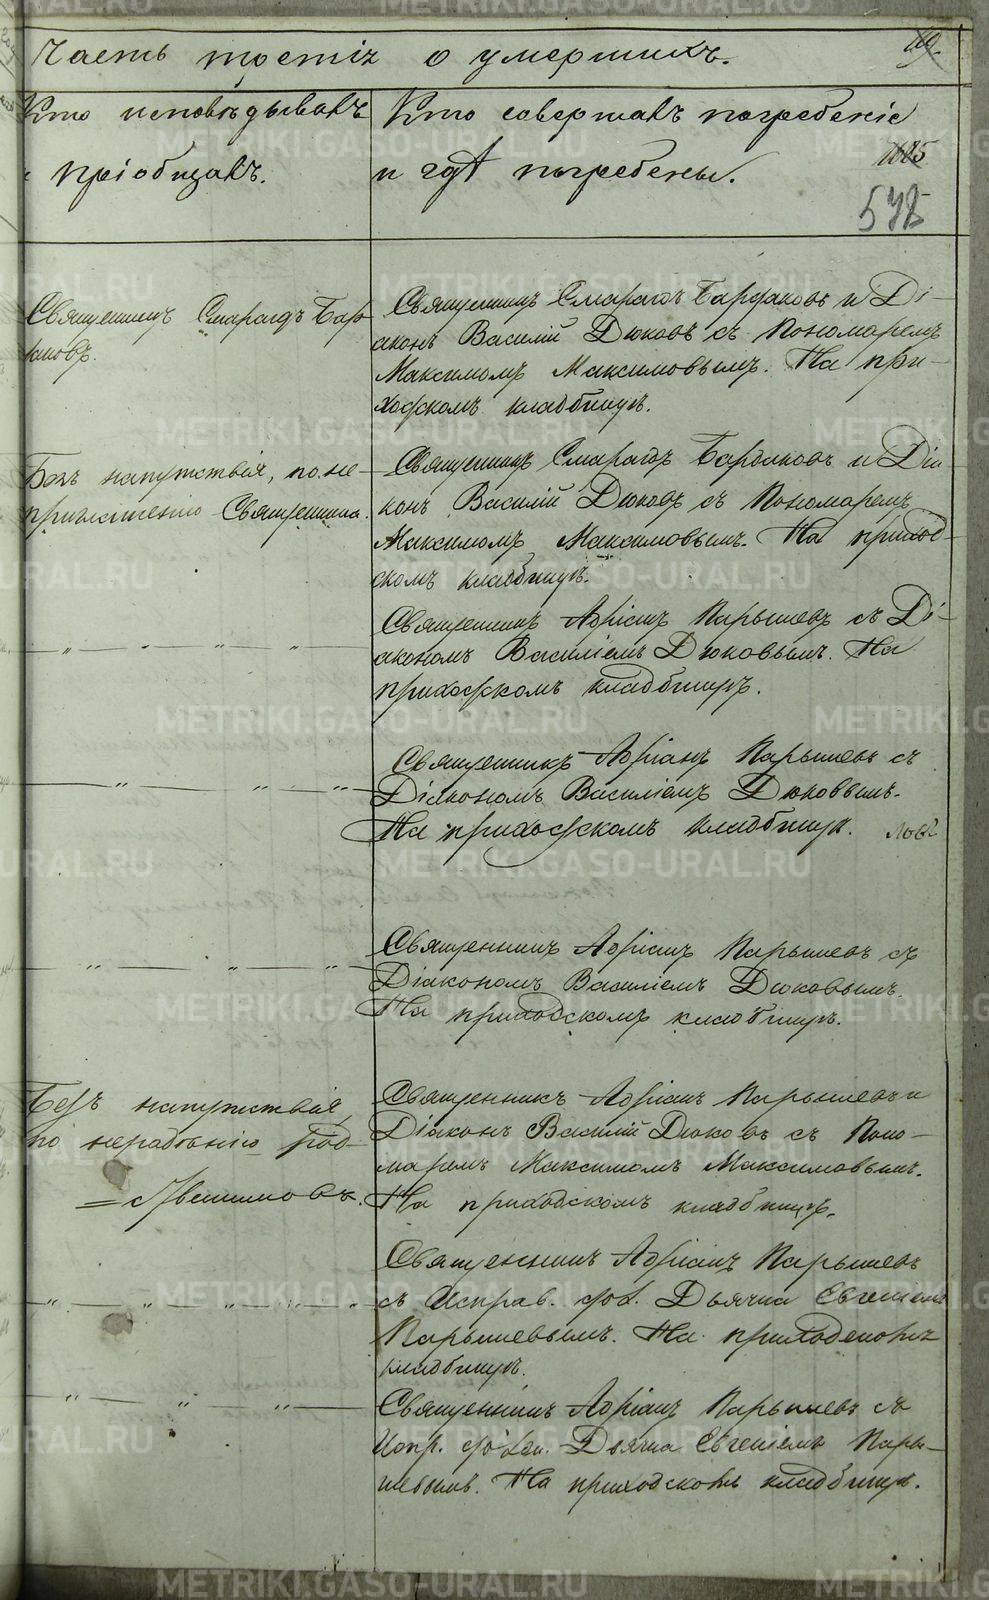 Часть третія о умершихъ.
Кто исповѣдывалъ
и пріобщалъ.
Кто совершалъ погребеніе
и гдѣ погребены.
Священникъ Смарагдъ Бар
Священникъ Смарагдъ Бардаковъ и Ді-
аконъ Василій Дюковъ съ Пономаремъ
Максимомъ Максимовымъ. На при-
ходскомъ кладбищѣ.
Безъ напутствія, по не-
приглашенію Священника.
Священникъ Смарагдъ Бардаковъ и Діа-
конъ Василій Дюковъ съ Пономаремъ
Максимомъ Максимовымъ. На приход-
скомъ кладбищѣ.
— „ — „ — „ — „ —
Священникъ Адріанъ Парышевъ съ Ді-
акономъ Василіемъ Дюковымъ. На
приходскомъ кладбищѣ.
— „ — „ — „ —
Священникъ Адріанъ Парышевъ съ
Діакономъ Василіемъ Дюковымъ.
На приходскомъ кладбищѣ.
— „ — „ — „ —
Священникъ Адріанъ Парышевъ съ
Діакономъ Василіемъ Дюковымъ.
На приходскомъ кладбищѣ.
Безъ напутствія,
по нерадѣнію род-
=ственниковъ.
Священникъ Адріанъ Парышевъ и
Діаконъ Василій Дюковъ съ Поно-
маремъ Максимомъ Максимовымъ.
На приходскомъ кладбищѣ.
— „ — „ — „ — „
Священникъ Адріанъ Парышевъ
съ Исправ. дол. Дьячка Евгеніемъ
Парышевымъ. На приходскомъ
кладбищѣ.
— „ — „ — „ —
Священникъ Адріанъ Парышевъ съ
Испр. долж. Дьячка Евгеніемъ Пары-
шевымъ. На приходскомъ кладбищѣ.
METRIKI.GASO-URAL.RU